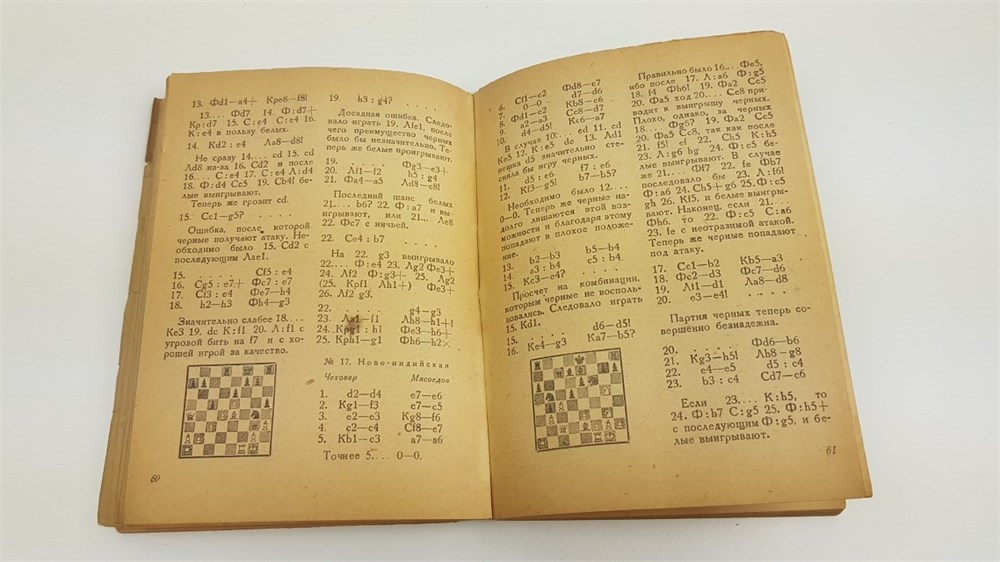 13. Фd1—a4+ Kpe8—f8!
13.... Фd7 14. Ф:d7+
Кp:d7 15. С:e4 С:e4 16.
К:e4 в пользу белых.
14. Kd2:e4 Ла8—d8!
Не сразу 14.... cd 15. cd
Лd8 из-за 16. Cd2 и после
16.... С:e4 17. С:e4 Л:d4
18. Ф:d4 Ce5 19. Cb4! бе-
лые выигрывают.
Теперь же грозит cd.
15. Cc1—g5? . . . .
Ошибка, после которой
черные получают атаку. Не-
обходимо было 15. Cd2 с
последующим Лae1.
15. . . . . Cf5:e4
16. Cg5:e7+ Фc7:e7
17. Cf3:e4 Фe7—h4
18. h2—h3 Фh4—g3
Значительно слабее 18....
Ke3 19. dc K:f1 20. Л:f1 с
угрозой бить на f7 и с хо-
рошей игрой за качество.
60
19. h3:g4? . . . . .
Досадная ошибка. Следо-
вало играть 19. Лfe1, после
чего преимущество черных
было бы незначительно. Те-
перь же белые проигрывают.
19. . . . . Фg3—e3+
20. Лf1—f2 h5:g4
21. Фa4—a5 Лd8—e8!
Последний шанс белых
21.... b6? 22. Ф:a7 и вы-
игрывают, или 21... Лe8
22. Фc7 с ничьей.
22. Ce4:b7 . . . . .
На 22. g3 выигрывало
22.... Ф:e4 23. Лg2 Фe3+
24. Лf2 Ф:g3+ 25. Лg2
(25. Kpf1 Лh1+) Фe3+
26. Лf2 g3.
22. . . . . g4—g3
23. Ла1—f1 Лh8—h1+!
24. Kpg1:h1 Фe3—h6+
25. Kph1—g1 Фh6—h2×
№ 17. Ново-индийская
Чеховер Мясоедов
1. d2—d4 e7—e6
2. Kg1—f3 c7—c5
3. e2—e3 Kg8—f6
4. c2—c4 Cf8—e7
5. Kb1—c3 a7—a6
Точнее 5.... 0—0.
6. Cf1—e2 Фd8—c7
7. 0—0 d7—d6
8. Фd1—c2 Kb8—c6
9. a2—a3 Cc8—d7
10. d4—d5! Kc6—a7
В случае 10.... ed 11. cd
Ke5 12. K:e5 de 13. Лd1
пешка d5 значительно сте-
сняла бы игру черных.
11. d5:e6 f7:e6
12. Kf3—g5! b7—b5?
Необходимо было 12....
0—0. Теперь же черные на-
долго лишаются этой воз-
можности и благодаря этому
попадают в плохое положе-
ние.
13. b2—b3 b5—b4
14. a3:b4 c5:b4
15. Kc3—e4? . . . .
Просчет на комбинации,
которым черные не восполь-
зовались. Следовало играть
15. Kd1.
15. . . . . d6—d5!
16. Ke4—g3 Ka7—b5?
Правильно было 16.... Фe5,
ибо после 17. Л:a6 Ф:g5
18. f4 Фh6! 19. Фa2 Cc5
20. Фa5 ход 20.... Cc8 при-
водит к выигрышу черных.
Плохо, однако, за черных
18.... Фg6? 19. Фa2 Cc5
20. Фa5 Cc8, так как после
21. f5! ef 22. Ch5 K:h5
23. Л:g6 hg 24. Ф:c5 бе-
лые выигрывают. В случае
же 21.... Фf7 22. fe Фb7
последовало бы 23. Л:f6!
Ф:a6 24. Ch5+ g6 25. Ф:c5
gh 26. Kf5. и белые выигры-
вают. Наконец, если 21....
Фh6. то 22. Ф:c5 С:a6
23. fe с неотразимой атакой.
Теперь же черные попадают
под атаку.
17. Cc1—b2 Kb5—a3
18. Фc2—d3 Фc7—d6
19. Лf1—d1 Ла8—d8
20. e3—e4! . . . .
Партия черных теперь со-
вершённо безнадежна.
20. . . . . Фd6—b6
21. Kg3—h5! Лh8—g8
22. e4—e5 d5:c4
23. b3:c4 Cd7—c6
Если 23.... K:h5, то
24. Ф:h7 C:g5 25. Ф:h5+
с последующим Ф:g5. и бе-
лые выигрывают.
61